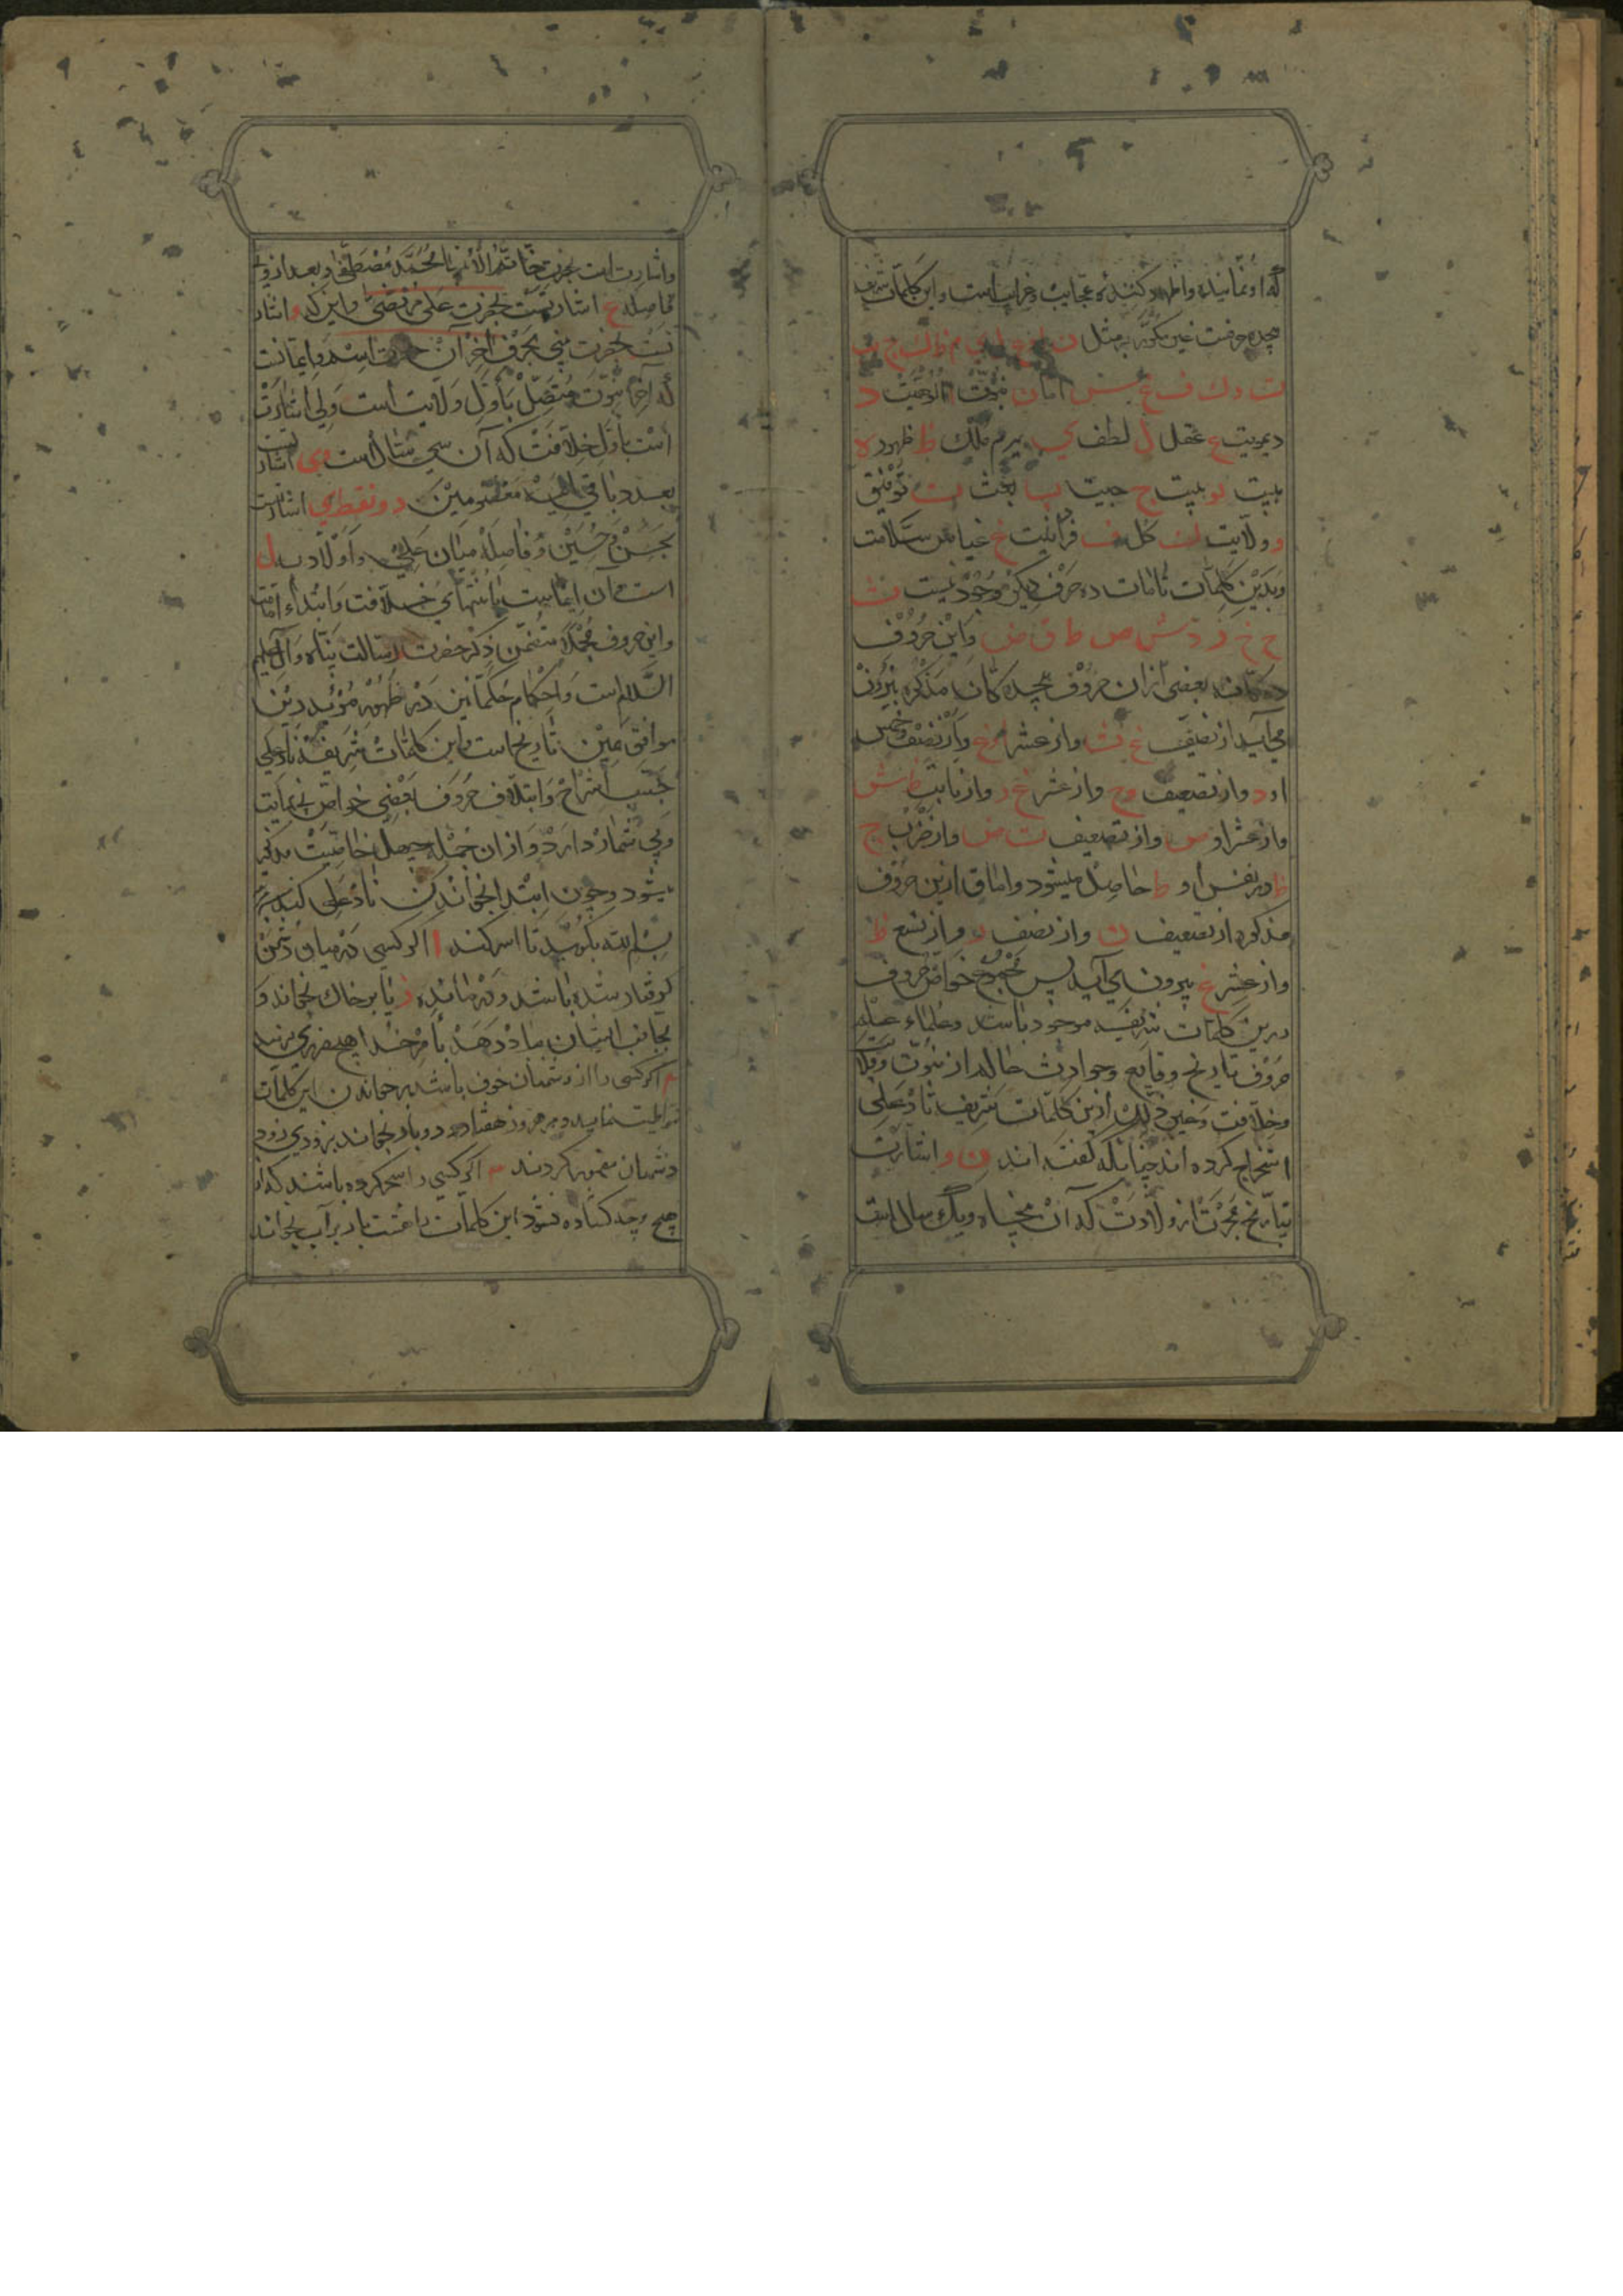 که او نماینده و اظهار کننده عجایب و غرایب است و این کلمات شریف
هیجده حرفست غیر مکرر به مثل ن ا د ع ل ی م ظ ه ر ج ب
ت و ك ف غ س امان نبوت الوهیت د
دیمویت ع عقل ل لطف ی یرم ملك ظ ظهور ه
هیبت و ج ب بحث ت توفیق
و ولایت ك کل ف فردانیت غ غیاث س سلامت
و بدین کلمات تامات ده حرف دیکر موجود نیست ث
ح خ ذ ز ش ص ط ق ض و این حروف
ده کانه بعضی ازان حروف هیجده کانه مذکوره بیرون
می آید از تضعیف غ ث و از عشر خ و از نصف خمس
او د و از تضعیف و ح و از عشر غ ز و از ش
و از عشر او س و از تضعیف ت ض و از ضرب ج
در نفس او ط حاصل میشود و اما ق ازین حروف
مذکوره از تضعیف ن و از نصف ر و از تسع ظ
و از عشر غ بیرون می آید پس مجموع خواص حروف
درین کلمات شریفه موجود باشد و علماء علم
حروف تاریخ وقایع و حوادث حاله از نبوت و ولا
و خلافت و غیر ذلك ازین کلمات شریف ناد علی
استخراج کرده اند چنانکه کفته اند ن و اشارت
بتاریخ هجرت از ولادت که آن پنجاه و یك سال است
و اشارت است بحضرت خاتم الأنبیا محمد مصطفی و بعد از وی
فاصله ع اشارتست بحضرت علی مرتضی و این که و اشار
تست بحضرت نبی بحرف آخر آن حضرت است و ایمانست
که آخر نبوت متصل بأول ولایت است ولی اشارت
است بأول خلافت که آن سی سال است ی اشار تست
بعدد باقی ائمه معصومین دو نقطه ی اشارتست
بحسن و حسین و فاصله میان علی و أولاد ل
است و آن ایمانیست بانتهای خلافت و ابتداء امامت
و این حروف مجملا متضمن ذکر حضرت رسالت پناه و آل علیهم
السلام است و احکام حکما نیز در ظهور مؤید دین
موافق همین تاریخ است و این کلمات شریفه ناد علی
بحسب امتزاج و ایتلاف حروف بعضی خواص بی نهایت
و بی شمار دارد و از ان جمله چهل خاصیت مذکور
میشود و چون ابتدا بخواندن ناد علی کنید
بسم الله بکوید تا اسر کند ۱ اکر کسی در میان دشمن
کرفتار شده باشد و درمانده بر خاك بخواند و
بجانب ایشان باد دهد بامر خدا هیچ ضرری نرسد
۲ اکر کسی را از دشمنان خوف باشد بر خواندن این کلمات
مواظبت نماید و هر روز هفتاد و دو بار بخواند بزودی زود
دشمنان مقهور کردند ۳ اکر کسی را سحر کرده باشند که از
هیچ وجه کشاده نشود این کلمات را هشت بار بر آب بخواند